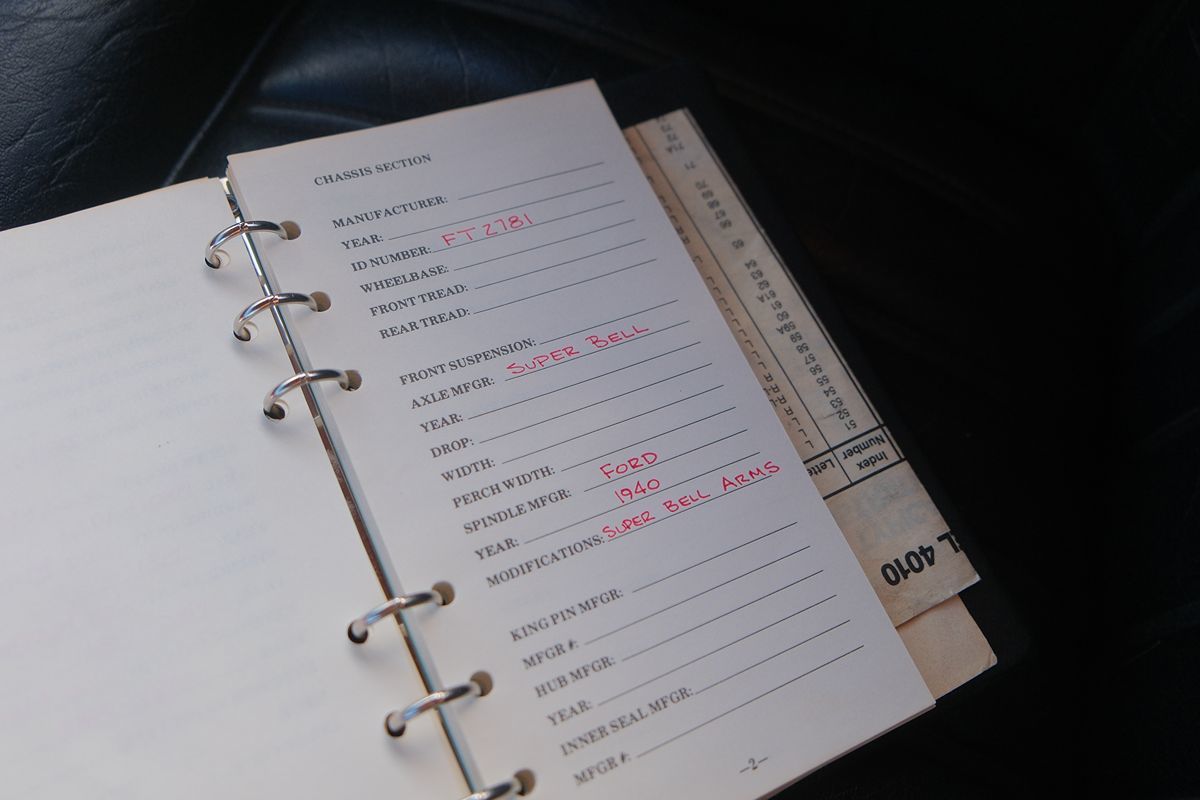 CHASSIS SECTION
MANUFACTURER:
YEAR:
ID NUMBER: FT2781
WHEELBASE:
FRONT TREAD:
REAR TREAD:
FRONT SUSPENSION:
AXLE MFGR: SUPER BELL
YEAR:
DROP:
WIDTH:
PERCH WIDTH:
SPINDLE MFGR: FORD
YEAR: 1940
MODIFICATIONS: SUPER BELL ARMS
KING PIN MFGR:
MFGR #:
HUB MFGR:
YEAR:
INNER SEAL MFGR:
MFGR #:
-2-
L 4010
Index
Number
Lette
51
52
53
54
55
56
57
58
59
59A
60
61
61A
62
63
64
65
66
67
68
69
70
71
71A
72
73